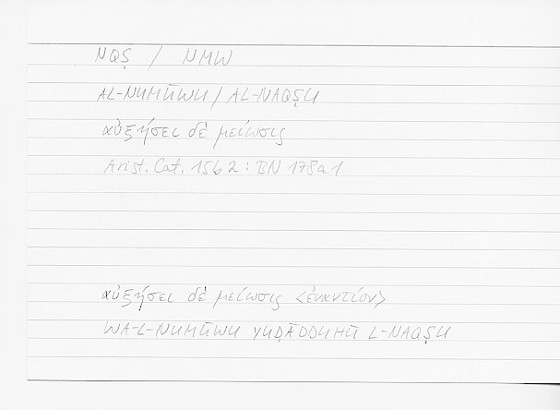 NQṢ / NMW
AL-NUMŪWU / AL-NAQṢU
αὐξήσει δὲ μείωσις
Arist. Cat. 15b2 : BN 178a1
αὐξήσει δὲ μείωσις <ἐναντίον>
WA-L-NUMŪWU YUḌĀDDUHŪ L-NAQṢU